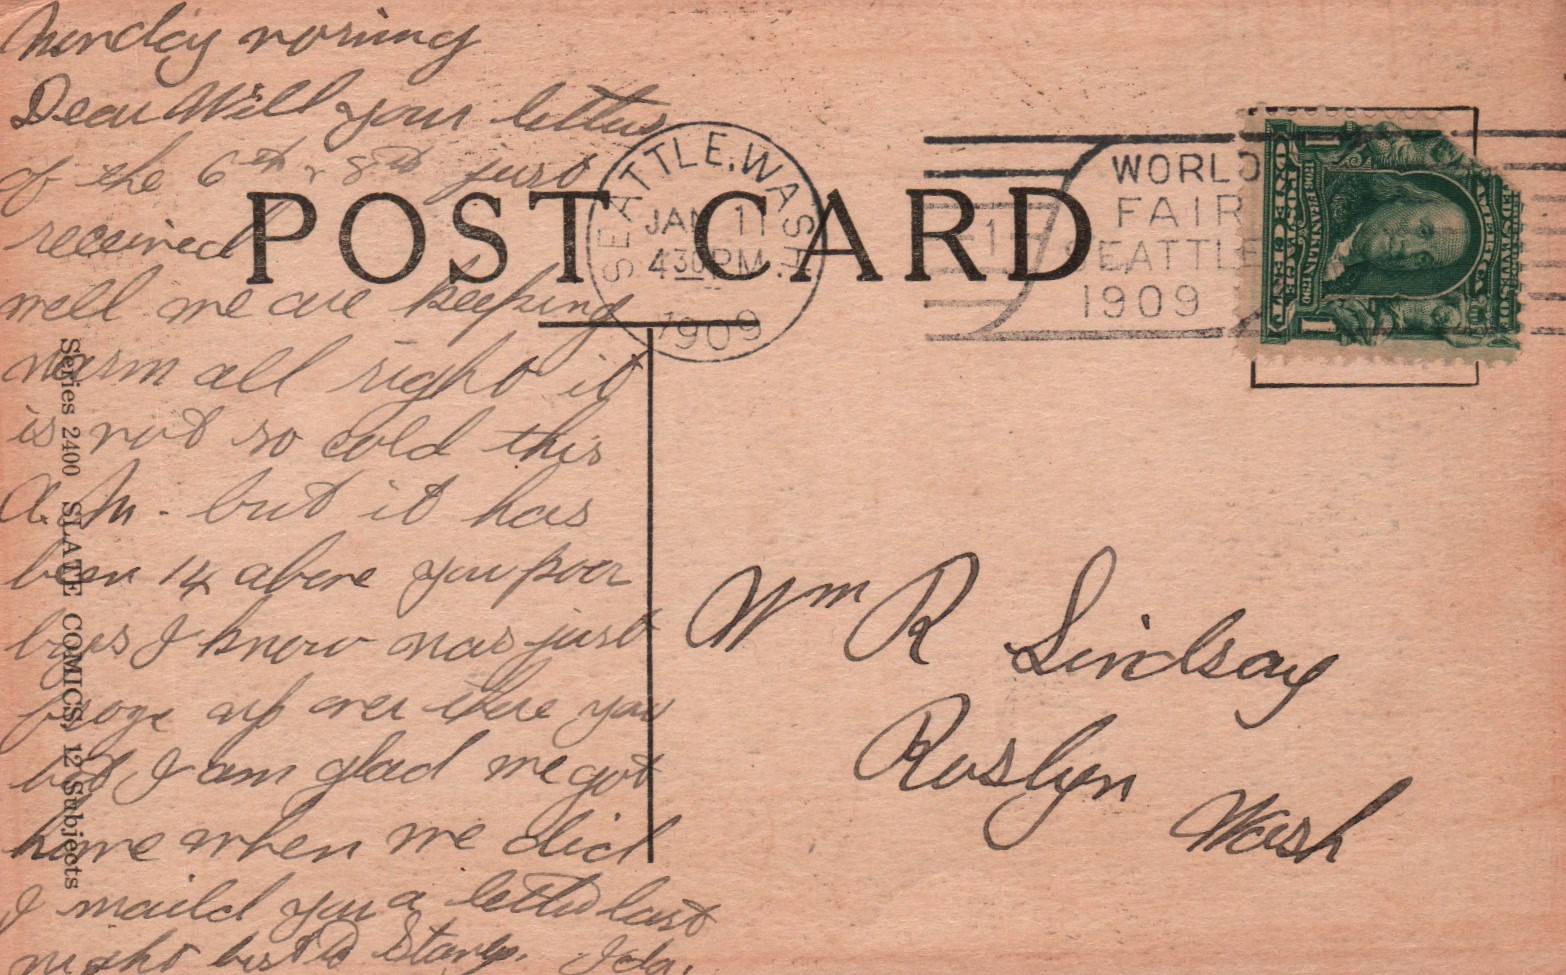 Monday morning
Dear Will your letters
of the 6th & 8th just
received
well we are keeping
warm all right it
is not so cold this
A.M. but it has
been 14 above you poor
boys I know was just
froze up over there you
bet I am glad we got
home when we did
I maild you a letter last
night Stamp. Ida.
POST CARD
SEATTLE, WASH.
JAN 11
430 PM
1909
1
WORLD
FAIR
SEATTLE
1909
1
FRANKLIN
ONE CENT
1
Wm R Lindsay
Roslyn
Wash
Series 2400 SLATE COMICS, 12 Subjects